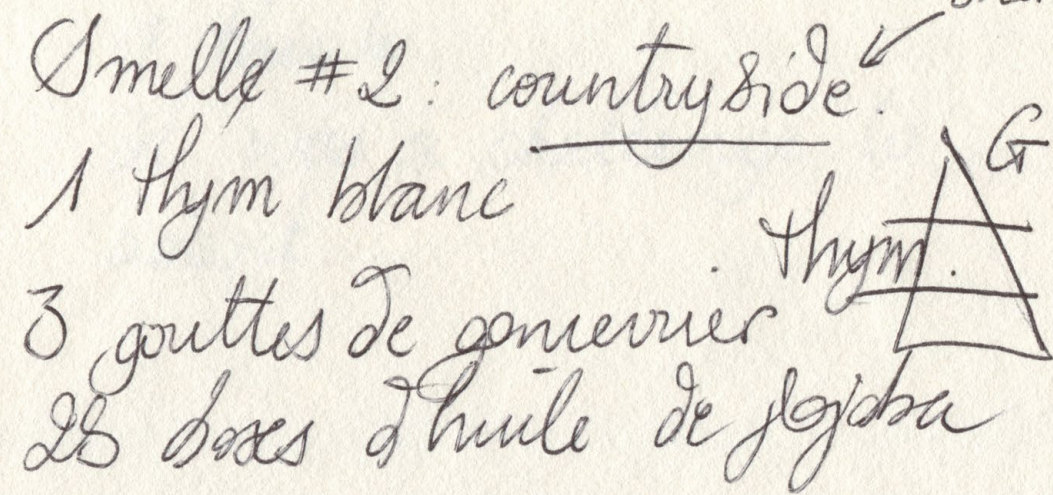 Smell #2: countryside.
G
1 thym blanc
thym.
3 gouttes de genievrier
28 doses d'huile de jojoba